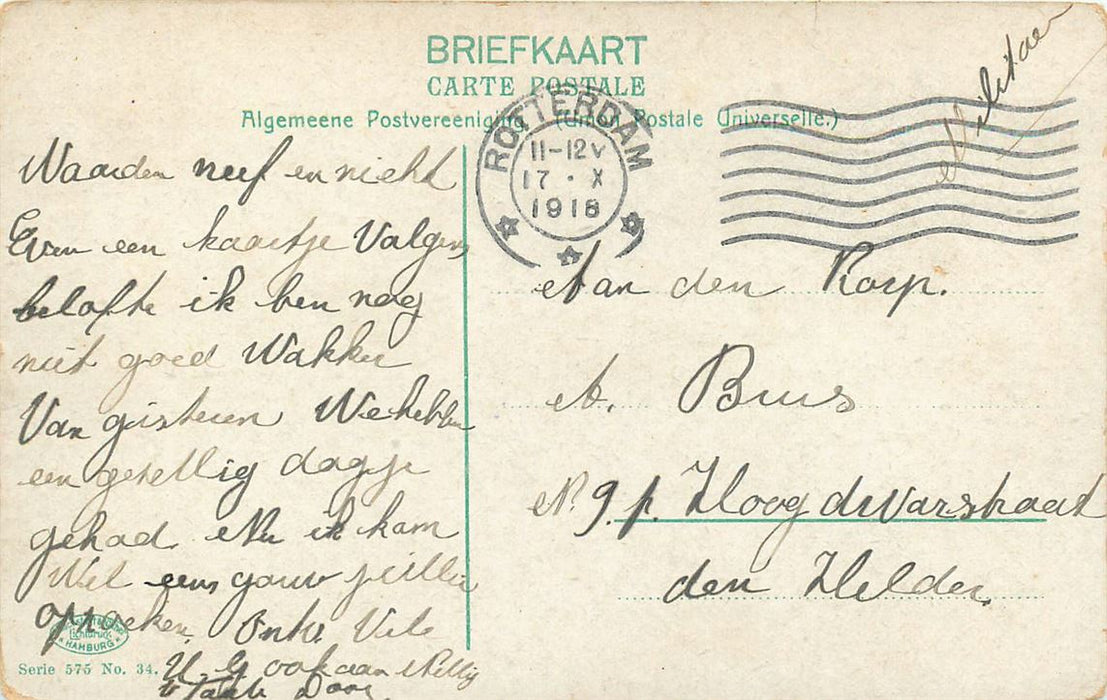 BRIEFKAART
CARTE POSTALE
Algemeene Postvereeniging (Union Postale Universelle.)
ROTTERDAM
11-12 V
17 · X
1918
Militair
Waarden neef en nicht
Even een kaartje Volgens
belofte ik ben nog
niet goed Wakker
Van gisteren We hebben
een gezellig dagje
gehad. Nu ik kom
Wel eens gauw jullie
opzoeken. Ontv. Vele
U. G ook aan
Door
Aan den Korp.
A. Buis
N. 9. p. Hoog
den Helder.
Lichtdruck
HAMBURG
Serie 575 No. 34.